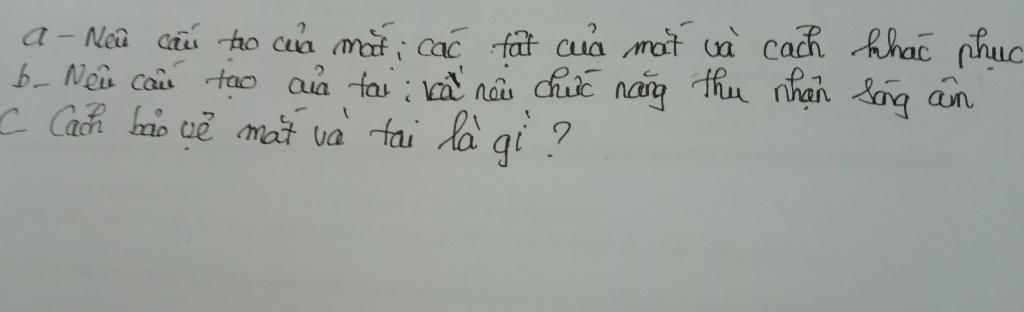 a - Nêu cấu tạo của mắt; các tật của mắt và cách khắc phục
b - Nêu cấu tạo của tai; và nêu chức năng thu nhận sóng âm
C Cách bảo vệ mắt và tai là gì?